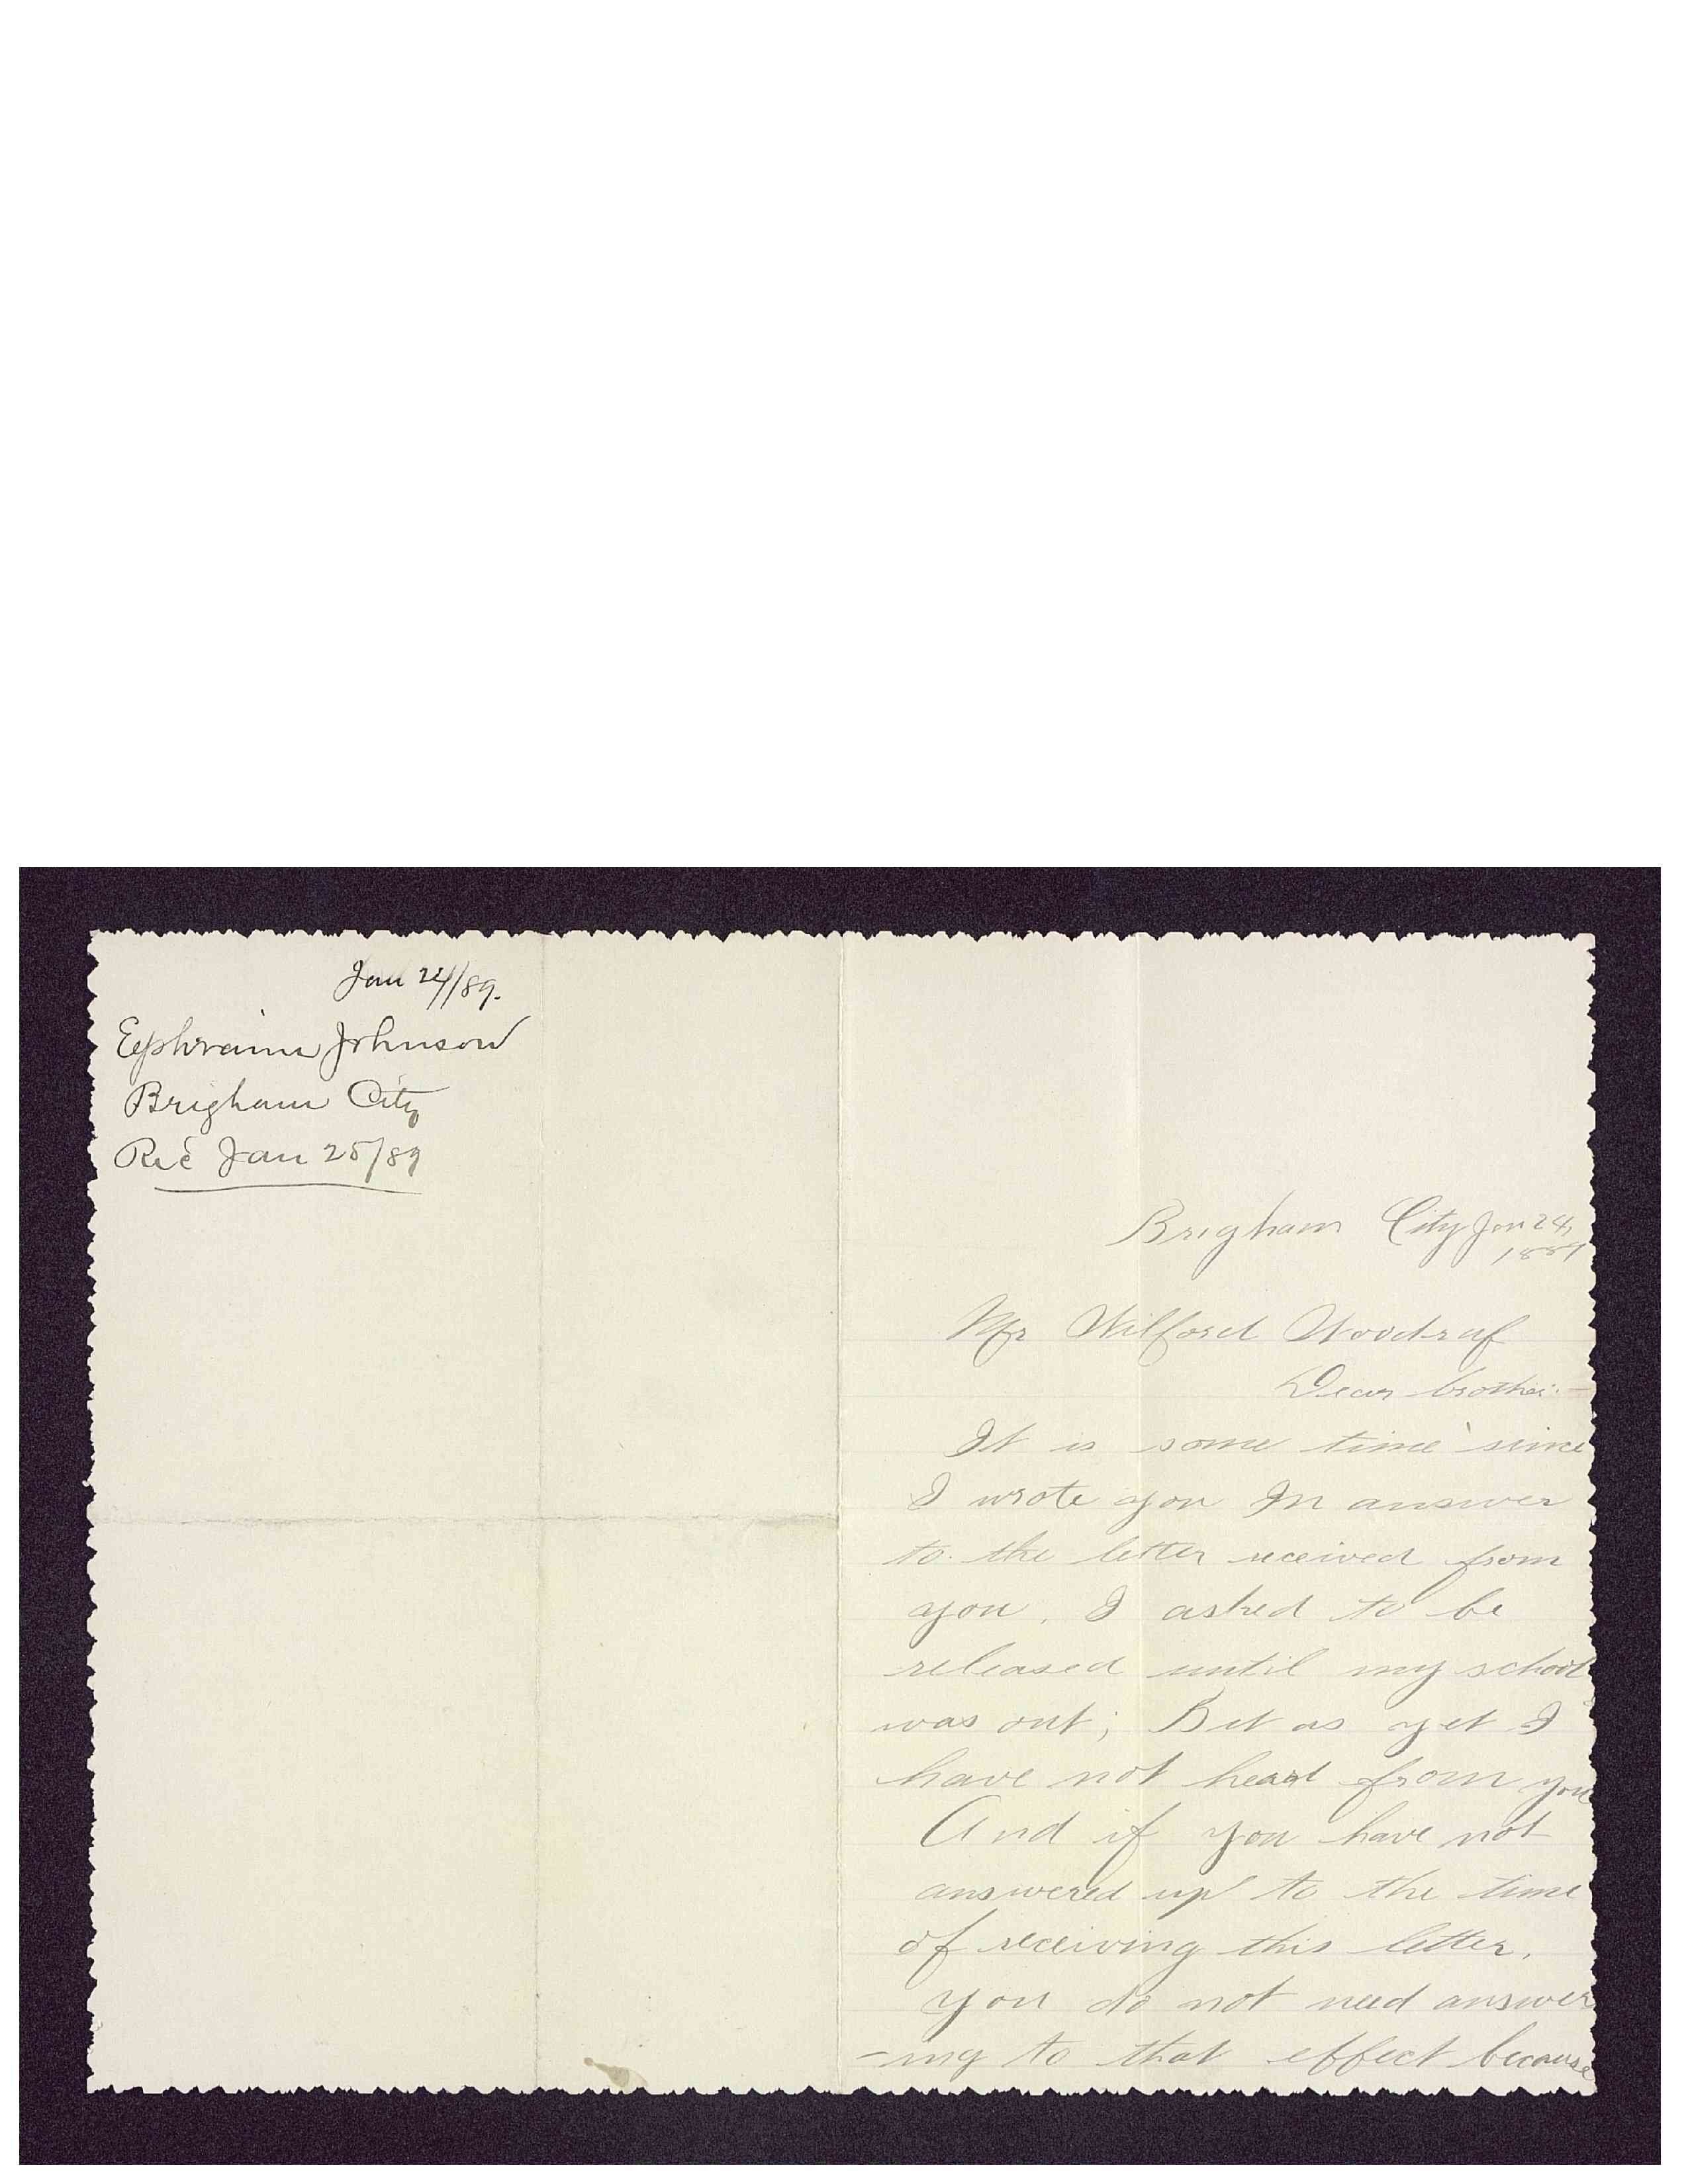 Jan 24/89.
Ephraim Johnson
Brigham City
Rec Jan 25/89
Brigham City Jan 24,
1889
Mr Wilford Woodruf
Dear brother:—
It is some time since
I wrote you In answer
to the letter received from
you. I asked to be
released until my school
was out; But as yet I
have not heard from you
And if you have not
answered up to the time
of receiving this letter,
you do not need answer
-ing to that effect because